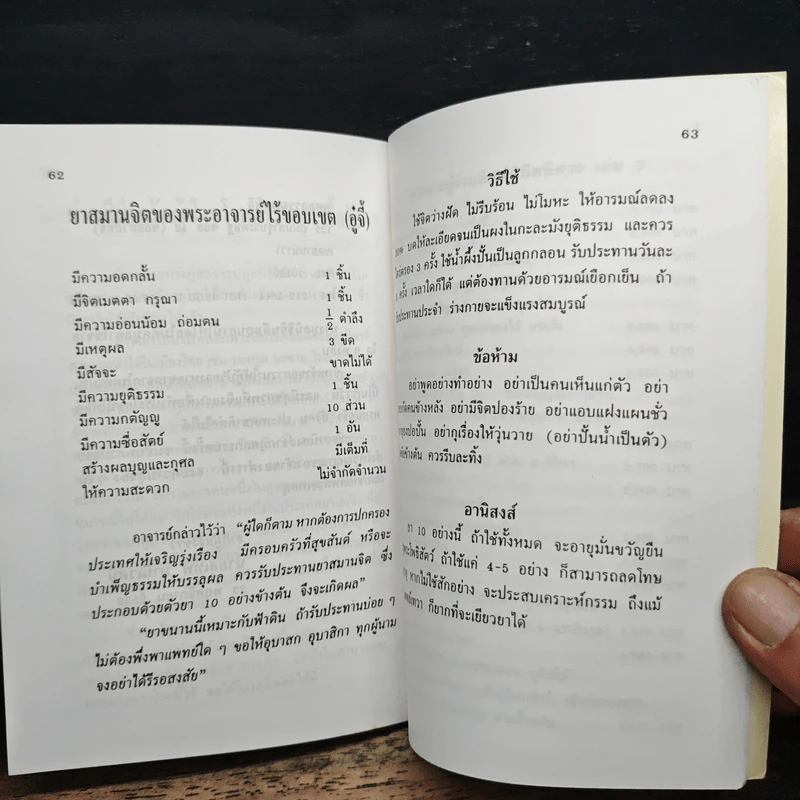 62
ยาสมานจิตของพระอาจารย์ไร้ขอบเขต (อู๋จี้)
มีความอดกลั้น 1 ชิ้น
มีจิตเมตตา กรุณา 1 ชิ้น
มีความอ่อนน้อม ถ่อมตน 1/2 ตำลึง
มีเหตุผล 3 ขีด
มีสัจจะ ขาดไม่ได้
มีความยุติธรรม 1 ชิ้น
มีความกตัญญู 10 ส่วน
มีความซื่อสัตย์ 1 อัน
สร้างผลบุญและกุศล มีเต็มที่
ให้ความสะดวก ไม่จำกัดจำนวน
อาจารย์กล่าวไว้ว่า “ผู้ใดก็ตาม หากต้องการปกครอง
ประเทศให้เจริญรุ่งเรือง มีครอบครัวที่สุขสันต์ หรือจะ
บำเพ็ญธรรมให้บรรลุผล ควรรับประทานยาสมานจิต ซึ่ง
ประกอบด้วยตัวยา 10 อย่างข้างต้น จึงจะเกิดผล”
“ยาขนานนี้เหมาะกับฟ้าดิน ถ้ารับประทานบ่อย ๆ
ไม่ต้องพึ่งพาแพทย์ใด ๆ ขอให้อุบาสก อุบาสิกา ทุกผู้นาม
จงอย่าได้รีรอสงสัย”
63
วิธีใช้
ใช้จิตว่างฝัด ไม่รีบร้อน ไม่โมหะ ให้อารมณ์ลดลง
บดให้ละเอียดจนเป็นผงในกะละมังยุติธรรม และควร
3 ครั้ง ใช้น้ำผึ้งปั้นเป็นลูกกลอน รับประทานวันละ
ครั้ง เวลาใดก็ได้ แต่ต้องทานด้วยอารมณ์เยือกเย็น ถ้า
ประทานประจำ ร่างกายจะแข็งแรงสมบูรณ์
ข้อห้าม
อย่าพูดอย่างทำอย่าง อย่าเป็นคนเห็นแก่ตัว อย่า
คนข้างหลัง อย่ามีจิตปองร้าย อย่าแอบแฝงแผนชั่ว
อย่ากุเรื่องให้วุ่นวาย (อย่าปั้นน้ำเป็นตัว)
ข้างต้น ควรรีบละทิ้ง
อานิสงส์
ยา 10 อย่างนี้ ถ้าใช้ทั้งหมด จะอายุมั่นขวัญยืน
ถ้าใช้แค่ 4-5 อย่าง ก็สามารถลดโทษ
หากไม่ใช้สักอย่าง จะประสบเคราะห์กรรม ถึงแม้
ก็ยากที่จะเยียวยาได้